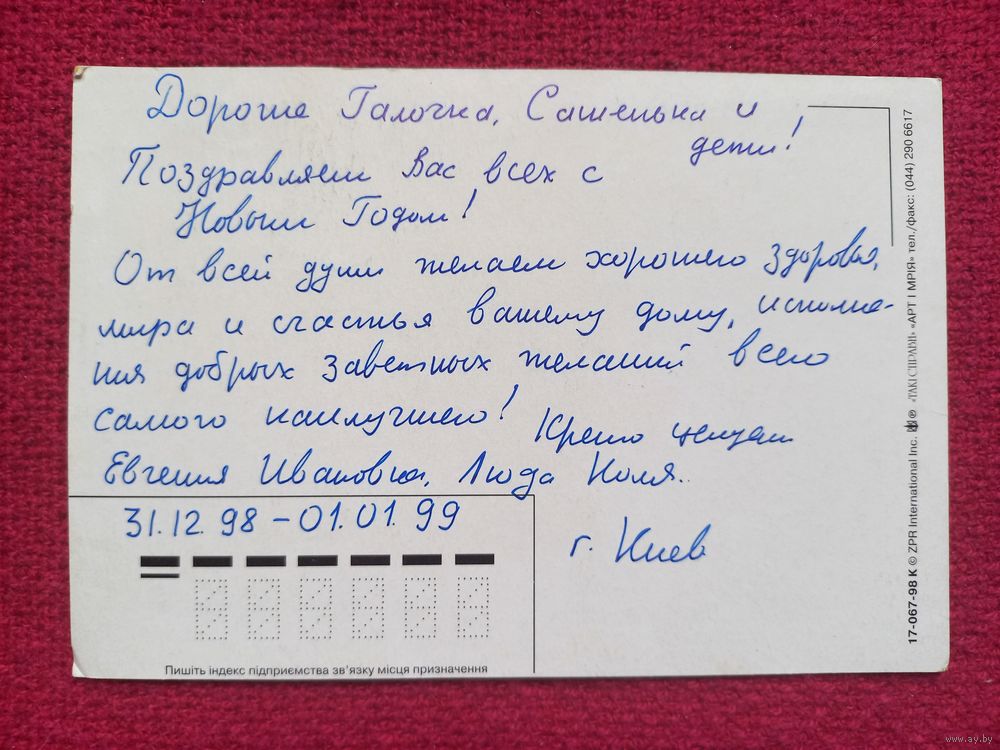 Дорогие Галочка, Сашенька и
дети!
Поздравляем Вас всех с
Новым Годом!
От всей души желаем хорошего здоровья,
мира и счастья вашему дому, исполне-
ния добрых заветных желаний всего
самого наилучшего!
Крепко целуем
Евгения Ивановна, Люда Коля..
31.12.98 – 01.01.99
г. Киев
Пишіть індекс підприємства зв'язку місця призначення
17-067-98 К © ZPR International Inc. ® «ТАКІ СПРАВИ» «АРТ І МРІЯ» тел./факс: (044) 290 6617
www.ay.by